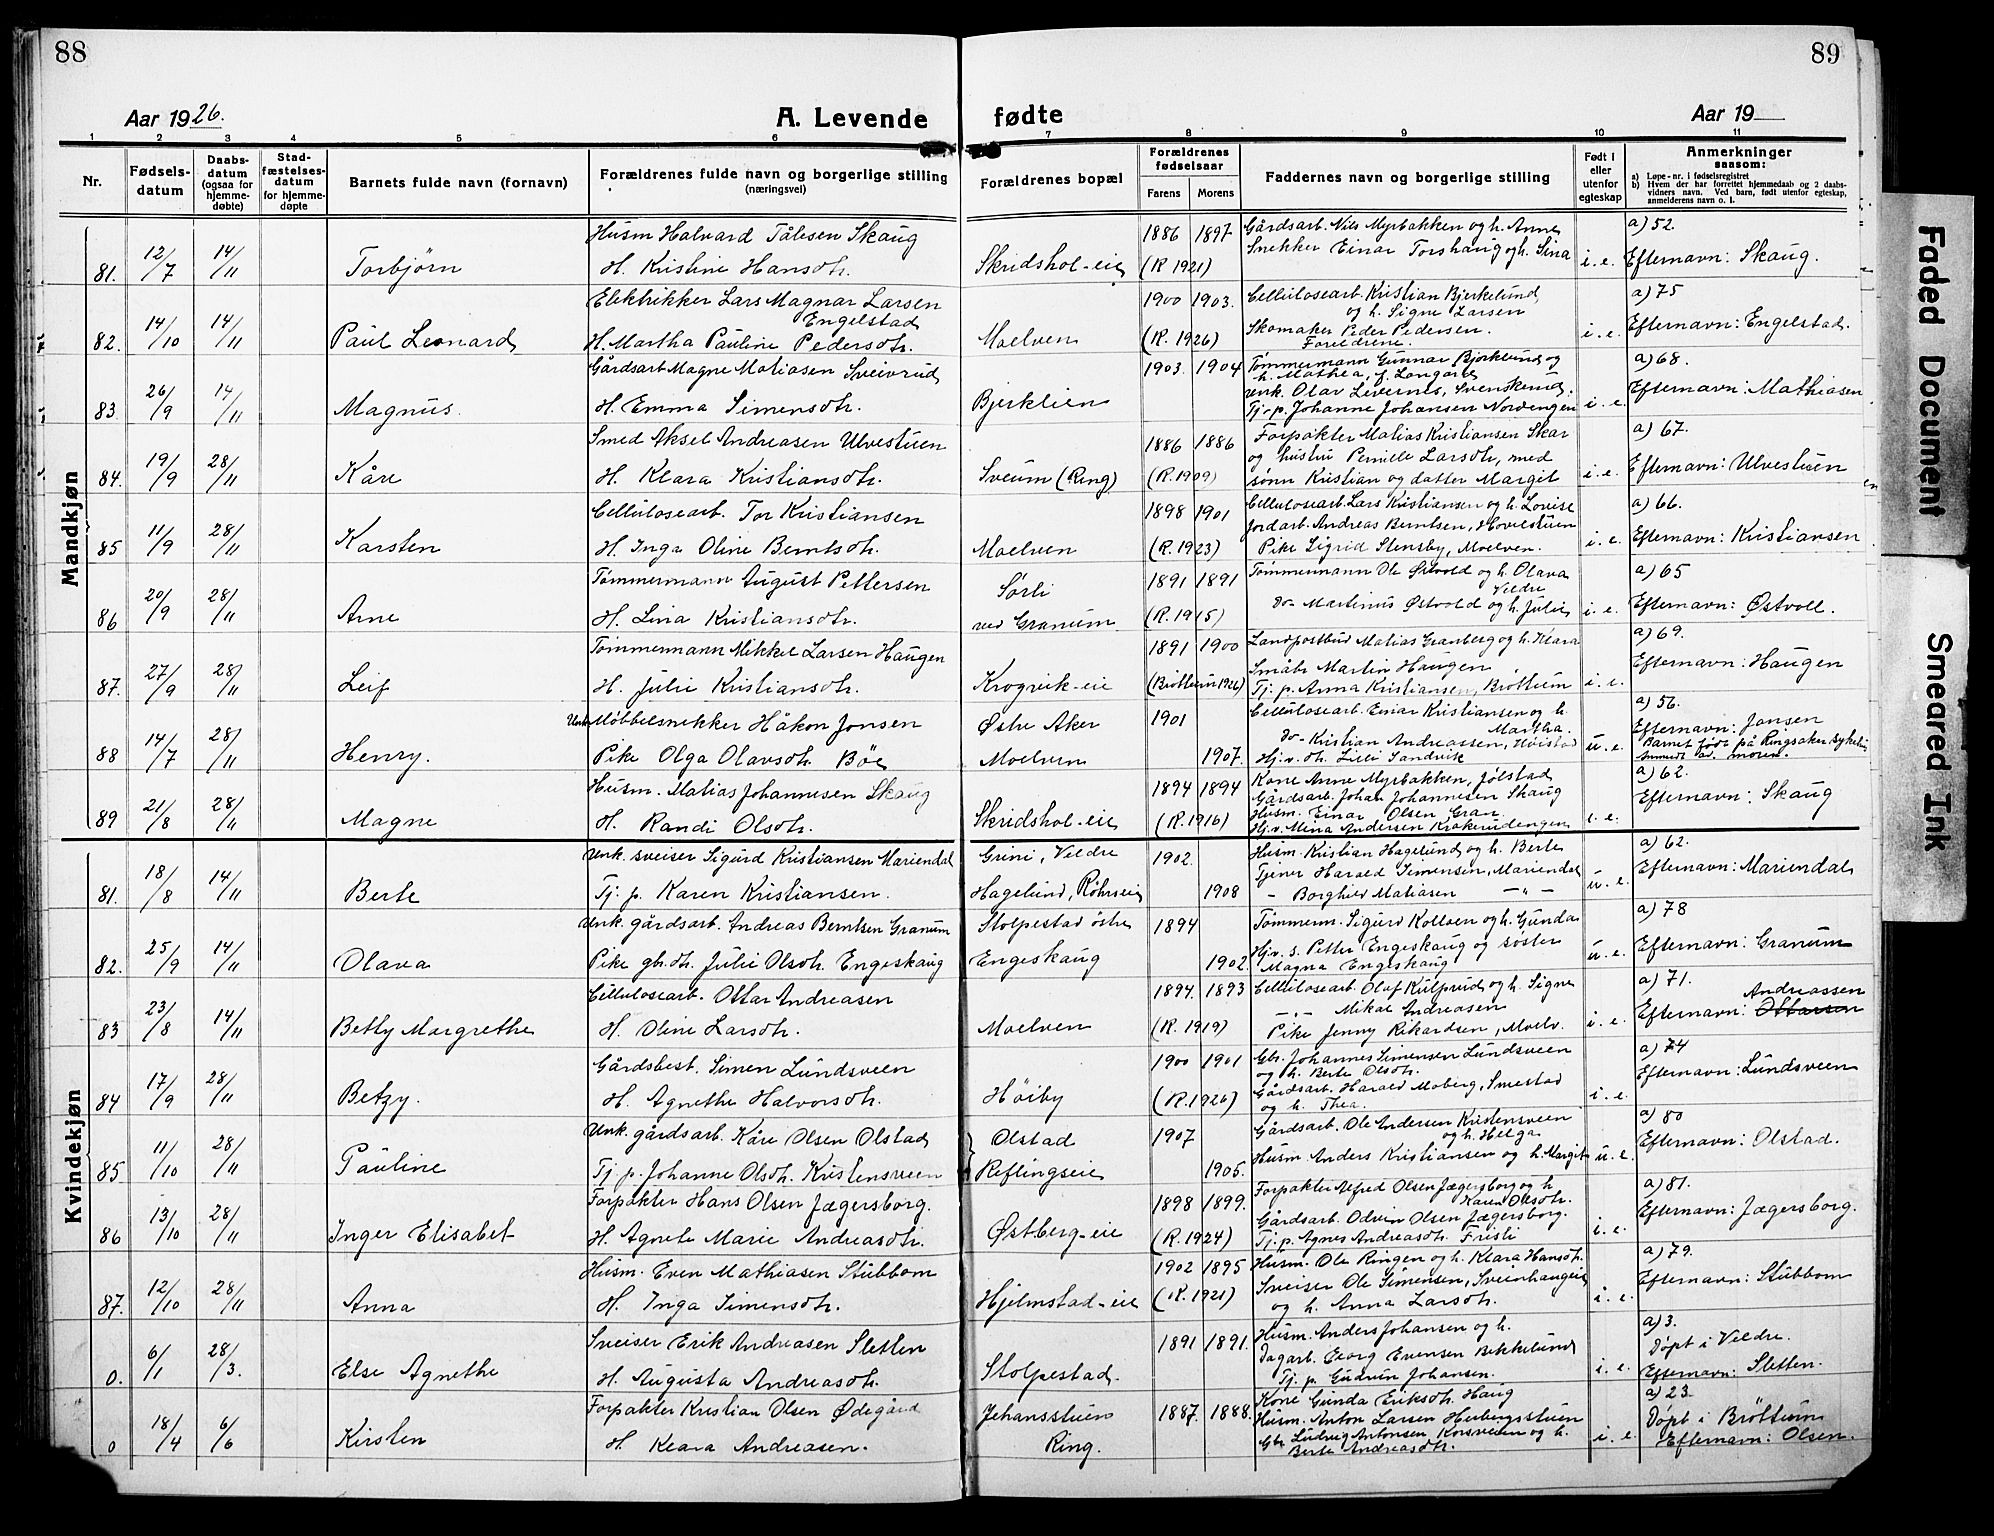 88
89
Aar 1926.
A. Levende
fødte
Aar 19
1 2 3 4 5 6 7 8 9 10 11
Nr.
Fødsels-
datum
Daabs-
datum
(ogsaa for
hjemme-
døbte)
Stad-
fæstelses-
datum
for hjemme-
døpte
Barnets fulde navn (fornavn)
Forældrenes fulde navn og borgerlige stilling
(næringsvei)
Forældrenes bopæl
Forældrenes
fødselsaar
Farens Morens
Faddernes navn og borgerlige stilling
Født i
eller
utenfor
egteskap
Anmerkninger
saasom:
a) Løpe-nr. i fødselsregistret
b) Hvem der har forrettet hjemmedaab og 2 daabs-
vidners navn. Ved barn, født utenfor egteskap,
anmelderens navn o. l.
Mandkjøn
Husm Halvard Tålesen Skaug 1886 1897 Gårdsarb. Nils Myrbakken og h. Anne a) 52.
81. 12/7 14/11 Torbjörn H. Kristine Hansdtr. Skridshol-eie (R 1921) Snekker Einar Torshaug og h. Sina i.e. Efternavn: Skaug.
Elektrikker Lars Magnar Larsen 1900 1903. Cellulosearb. Kristian Bjerkelund, a) 75
Engelstad og h. Signe Larsen
82. 14/10 14/11 Paul Leonard H. Martha Pauline Pedersdtr. Moelven (R. 1926) Skomaker Peder Pedersen. i.e. Efternavn: Engelstad.
Foreldrene.
Gårdsarb Magne Matiasen Sveivrud 1903. 1904 Tømmermann Gunnar Bjørklund og a) 68.
h. Mathea,
83. 26/9 14/11 Magnus. H. Emma Simensdtr. Bjerklien Unk. Olav Levernes, Svenskerud. i.e. Efternavn: Mathiasen
Tj.p. Johanne Johansen Nordengen
Smed Aksel Andreasen Ulvestuen 1886 1886 Forpakter Matias Kristiansen Skar a) 67.
og hustru Pernille Larsdtr, med
84. 19/9 28/11 Kåre H. Klara Kristiansdtr. Sveum (Ring) (R. 1909) sønn Kristian og datter Margit i.e. Efternavn: Ulvestuen
Cellulosearb. Tor Kristiansen 1898 1901 Cellulosearb. Lars Kristiansen og h. Lovise a) 66.
Jordarb. Andreas Berntsen, Hovestuen
85 11/9 28/11 Karsten H. Inga Oline Berntsdtr. Moelven (R. 1923) Pike Sigrid Stensby, Moelven. i.e. Efternavn: Kristiansen
Tømmermann August Pettersen Sørli 1891 1891 Tømmermann Ole Østvold og h. Olava a) 65
Veldre
86 20/9 28/11 Arne H. Lina Kristiansdtr. ved Granum (R. 1915) Do- Martinus Østvold og h. Julie i.e. Efternavn: Østvoll.
Tømmermann Mikkel Larsen Haugen 1891 1900 Landpostbud Matias Granberg og h. Klara a) 69.
Småbr Martin Haugen
87. 27/9 28/11 Leif H. Julie Kristiansdtr. Krogvik-eie (Brøttum 1926) Tj. p. Anna Kristiansen, Brøttum i.e. Efternavn: Haugen
Unk. Møbbelsnekker Håkon Jonsen Østre Aker 1901 Cellulosearb. Einar Kristiansen og h. a) 56.
Martha. Efternavn: Jonsen
88 14/7 28/11 Henry. Pike Olga Olavsdtr. Bøe Moelven 1907. Do- Kristian Andreassen, Høistad u.e. Barnet født på Ringsaker sykehus
Hj.v. dtr. Lilli Sandvik anmeldt av moren.
Husm. Matias Johannesen Skaug 1894 1894 Kone Anne Myrbakken, Jølstad a) 62.
Gårdsarb. Johan Johannesen Skaug
89 21/8 28/11 Magne H. Randi Olsdtr. Skridshol-eie (R. 1916) Husm. Einar Olsen Gran. i.e. Efternavn: Skaug
Hj.v. Mina Andersen Krakerudengen
Kvindekjøn
Unk. sveiser Sigurd Kristiansen Mariendal Grini, Veldre 1902. Husm. Kristian Hagelund og h. Berte a) 62.
Tjener Harald Simensen, Mariendal Efternavn: Mariendal
81. 18/8 14/11 Berte Tj. p. Karen Kristiansen. Hagelund, Røhrseie 1908 - Borghild Matiasen -"- u.e.
Unk. gårdsarb. Andreas Berntsen Granum Stolpestad östre 1894 Tømmerm. Sigurd Kolloen og h. Gunda a) 78
82. 25/9 14/11 Olava Pike gbr.dtr. Julie Olsdtr. Engeskaug Engeskaug 1902. Hj.v. s. Petter Engeskaug og søster u.e. Efternavn: Granum
Magna Engeskaug
Cellulosearb. Ottar Andreasen 1894. 1893 Cellulosearb. Olaf Kulpvid og h. Signe a) 71.
-"- Mikal Andreasen Andreassen
83 23/8 14/11 Betty Margrethe H. Oline Larsdtr. Moelven (R. 1919) Pike Jenny Rikardsen, Moelv. i.e. Efternavn: Ottarsen
Gårdsbest. Simen Lundsveen 1900 1901 Gbr. Johannes Simensen Lundsveen a) 74
og h. Berte Olsdtr.
84 17/9 28/11 Betzy. H. Agnethe Halvorsdtr. Höiby (R. 1926) Gårdsarb. Harald Moberg, Smestad i.e. Efternavn: Lundsveen
og h. Thea.
Unk. gårdsarb. Kåre Olsen Olstad Olstad 1907 Gårdsarb. Ole Andersen Kristensveen a) 80
og h. Helga
85 11/10 28/11 Pauline Tj. p. Johanne Olsdtr. Kristensveen Reflingseie 1905. Husm. Anders Kristiansen og h. Margit u.e. Efternavn: Olstad.
Forpakter Hans Olsen Jægersborg. 1898 1899. Forpakter Alfred Olsen Jægersborg og h a) 81.
Karen Olsdtr.
86 13/10 28/11 Inger Elisabet H. Agnete Marie Andreasdtr. Østberg-eie (R. 1924) Gårdsarb. Odvin Olsen Jægersborg. i.e. Efternavn: Jægersborg.
Tj. p. Agnes Andreasdtr. Frisli
Husm. Even Mathiasen Stubbom 1902 1895 Husm. Ole Ringen og h. Klara Hansdtr. a) 79.
87. 12/10 28/11 Anna H. Inga Simensdtr. Hjelmstad-eie (R. 1921) Sveiser Ole Simensen, Sveinhaugeie i.e. Efternavn: Stubbom
og h. Anna Larsdtr.
Sveiser Erik Andreasen Sletten 1891 1891. Husm. Anders Johansen og h. a) 3.
Døpt i Veldre.
0. 6/1 28/3. Else Agnethe H. Augusta Andreasdtr. Stolpestad. Dagarb. Georg Evensen Bekkelund i.e. Efternavn: Sletten.
Tj. p. Gudrun Johansen.
Forpakter Kristian Olsen Ødegård Jehansstuen 1887. 1888. Kone Gunda Eriksdtr. Haug a) 23.
Husm. Anton Larsen Herbergsstuen Døpt i Brøttum
0 18/4 6/6 Kirsten H. Klara Andreasen. Ring. Gbr. Ludvig Antonsen Korsveien og h. i.e. Efternavn: Olsen.
Berte Andreasdtr.
Faded Document
Smeared Ink